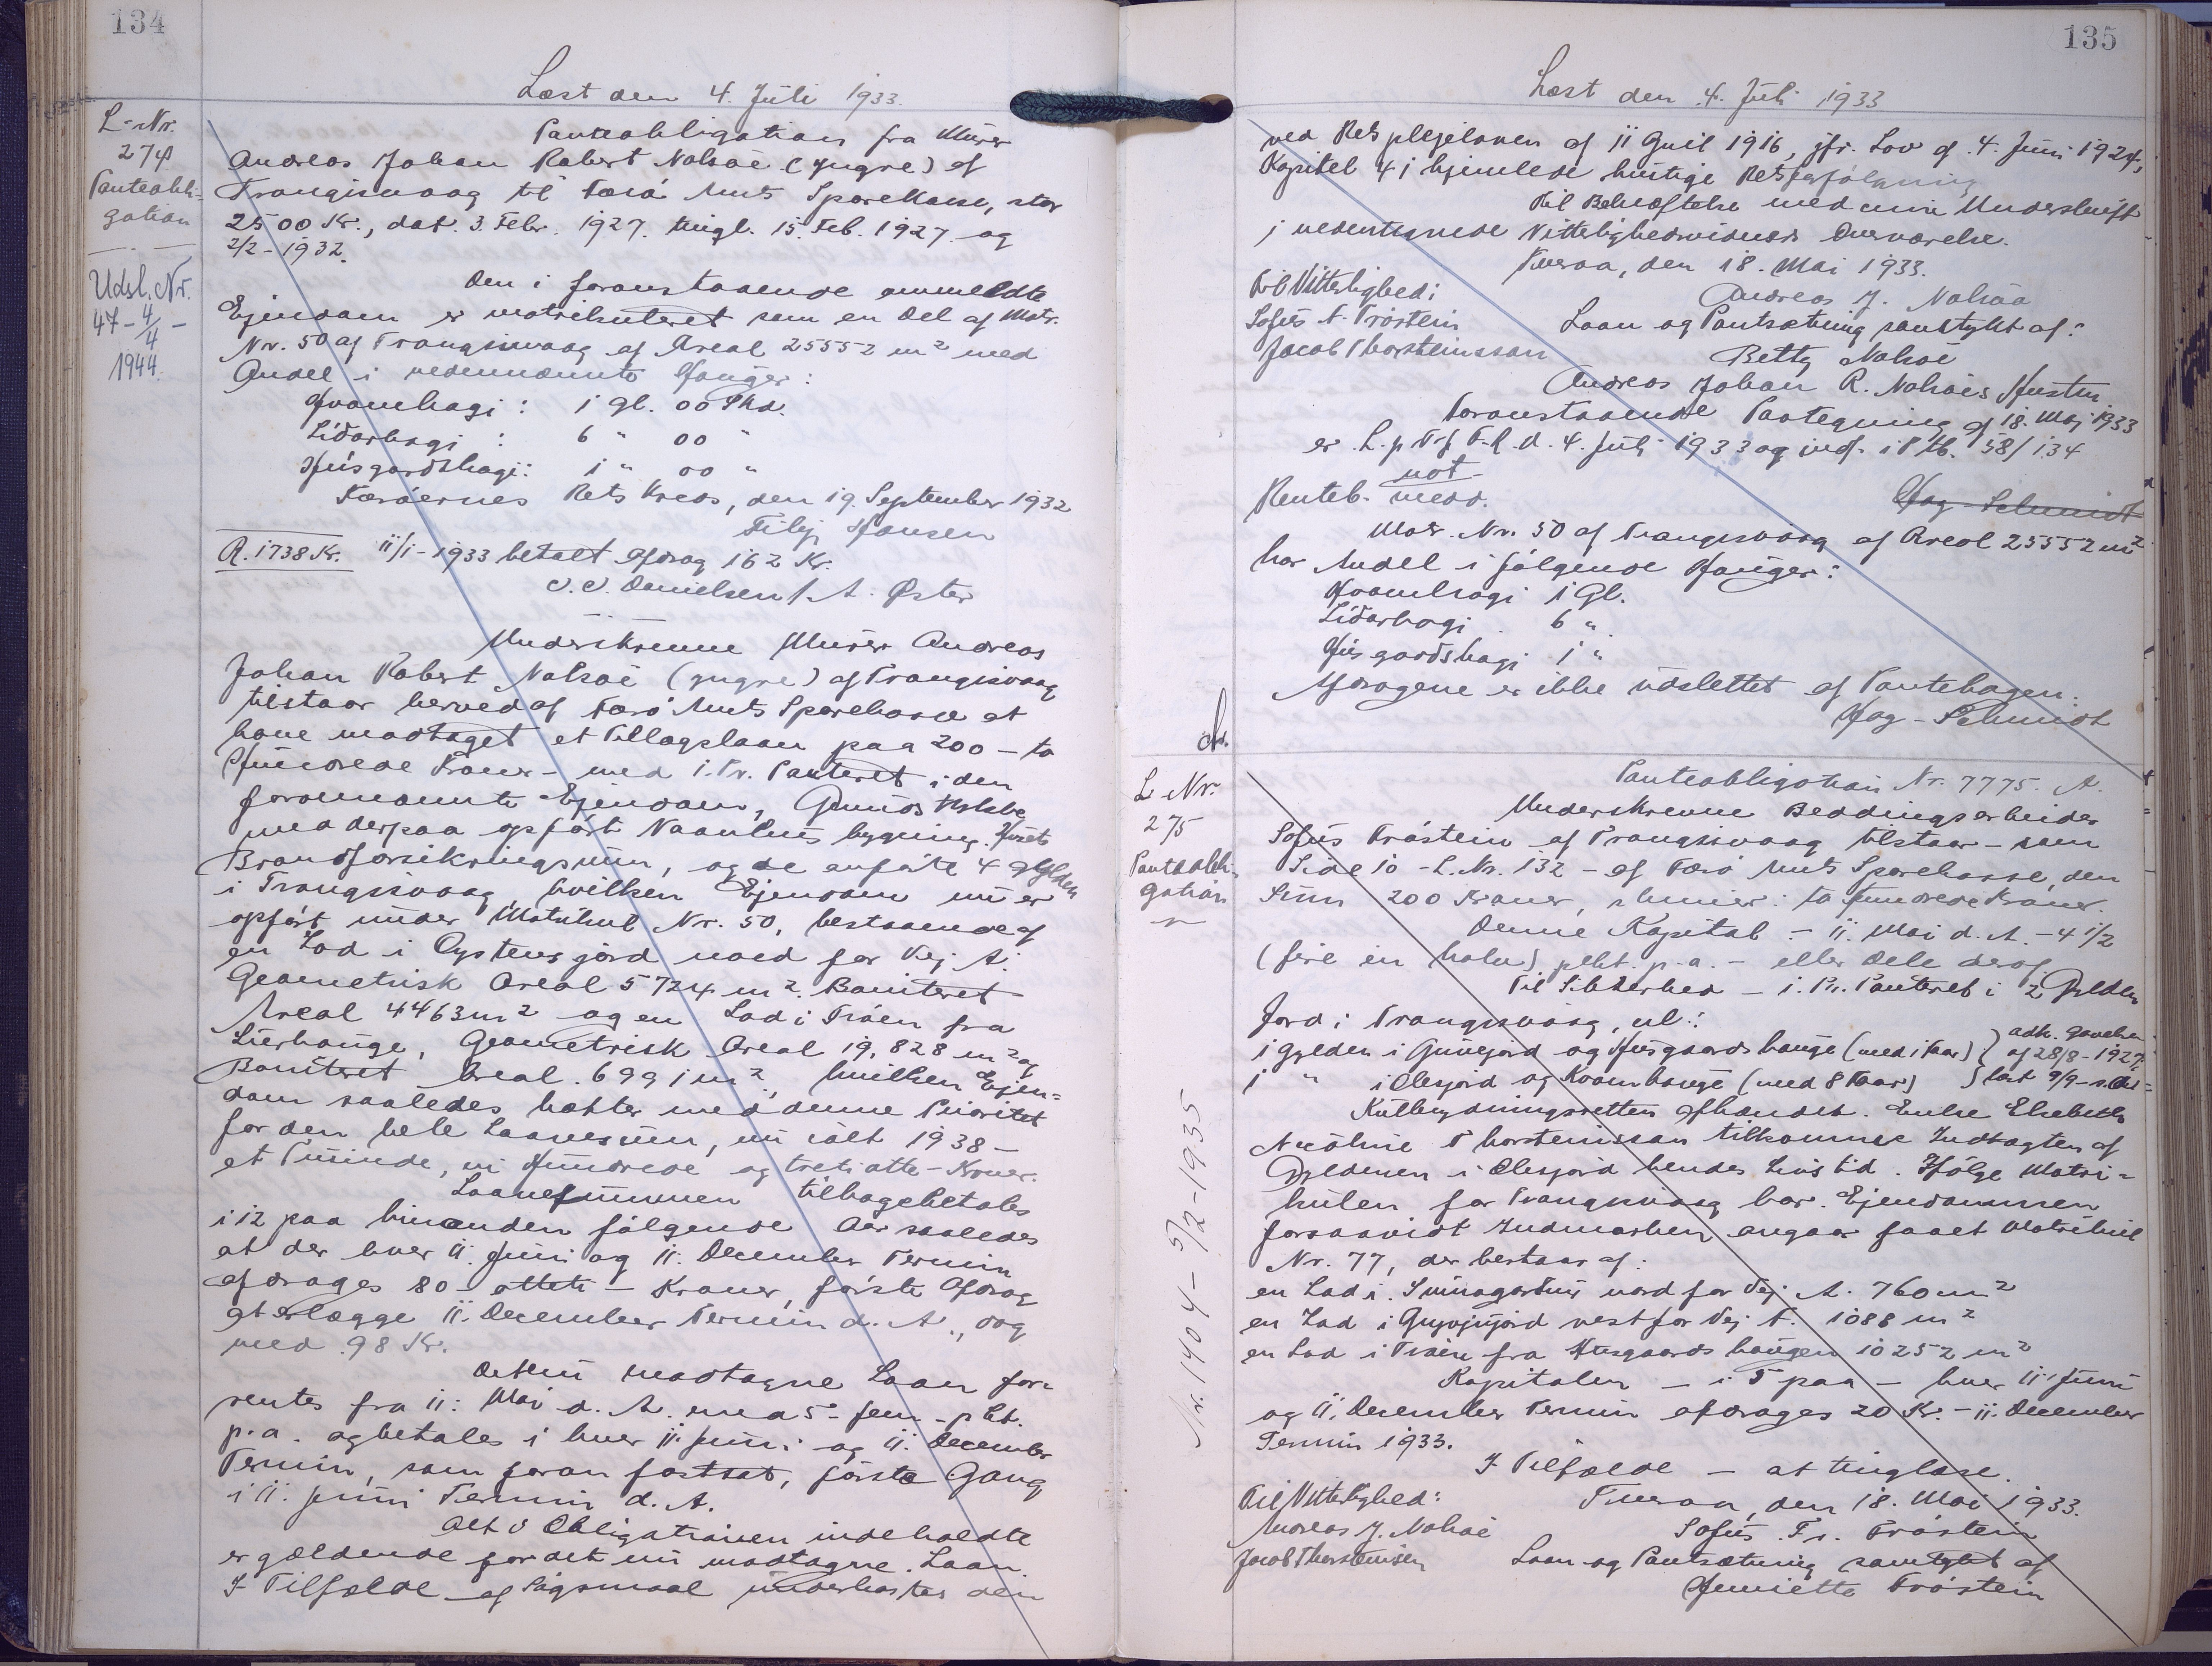 134
Læst den 4. Juli 1933.
L-Nr.
274
Panteobli-
gation
Udsl. Nr.
47-4/4-
1944.
Panteobligation fra Murer
Andreas Johan Robert Nolsøe (yngre) af
Trangisvaag til Færø Amts Sparekasse, stor
2500 Kr., dat. 3. Febr. 1927. tingl. 15. Feb. 1927 og
2/2-1932.
Den i foranstaaende ommeldte
Ejendom er matrikuleret som en Del af Matr.
Nr. 50 af Trangisvaag af Areal 25552 m² med
Andel i nedennævnte Hauger:
Kvamhagi: 1 gl. 00 Skd.
Lidarhagi: 6 " 00 "
Husgardshagi: 1 " 00 "
Færøernes Retskreds, den 19. September 1932
Filip Hansen
R. 1738 Kr. 11/1-1933 betalt Afdrag 162 Kr.
Danielsen / A. Øster
Underskrevne Murer Andreas
Johan Robert Nolsøe (yngre) af Trangisvaag
tilstaar herved af Færø Amts Sparekasse at
have modtaget et Tillægslaan paa 200 - to
Hundrede Kroner - med 1. Pr. Panteret i den
forommeldte Ejendom,
med derpaa opført Vaanhus bygning,
Brandforsikringssum, og de anførte 4 Gylden
i Trangisvaag hvilken Ejendom nu er
opført under Matrikul Nr. 50, bestaaende af
en Lod i Oystensjørd nord for Vej A.
Geometrisk Areal 5724 m². Boniteret
Areal 4463 m² og en Lod i Traðen fra
Lierhauge, Geometrisk Areal 19,828 m² og
Boniteret Areal. 6991 m², hvilken Ejen-
dom saaledes hæfter med denne Prioritet
for den hele Laanesum, nu ialt 1938 -
et Tusinde, ni Hundrede og treti otte - Kroner.
Laanesummen tilbagebetales
i 12 paa hinanden følgende Aar saaledes
at der hver 11. Juni og 11. December Termin
afdrages 80 - otteti - Kroner, første Afdrag
at erlægge 11. December Termin d. A., dog
med 98 Kr.
Det nu modtagne Laan for-
rentes fra 11. Maj d. A. med 5 - fem - pCt.
p. a. og betales i hver 11. Juni og 11. December
Termin, som foran fastsat, første Gang
i 11. Juni Termin d. A.
Alt i Obligationen indeholdte
er gældende for det nu modtagne Laan.
I Tilfælde af Søgsmaal underkaster den
135
Læst den 4. Juli 1933
ved Retsplejeloven af 11 April 1916, jfr. Lov af 4. Juni 1924,
Kapitel 41 hjemlede hurtige Retsforfølgning
Til Bekræftelse med min Underskrift
i nedentegnede Vitterlighedsvidners Overværelse.
Tveraa, den 18. Mai 1933.
Til Vitterlighed:
Andreas J. Nolsøe
Sofus F. Tróstein
Laan og Pantsætning samtykt af:
Jacob Thorsteinsson
Betty Nolsøe
Andreas Johan R. Nolsøes Hustru.
Foranstaaende Paategning af 18. Maj 1933
er L. p. Trf T. R. d. 4. Juli 1933 og indf. i Ptb. 58/134
not.
Renteb. medd.
Hag-Schmidt
Matr. Nr. 50 af Trangisvaag af Areal 25552 m²
har Andel i følgende Hauger:
Kvamhagi 1 Gl.
Lidarhagi 6 "
Husgardshagi 1 "
Afdragene er ikke udslettet af Pantebogen.
Hag-Schmidt
L Nr.
275
Panteobli-
gation
Nr. 1404 - 5/2-1935
Panteobligation Nr. 7775. A.
Underskrevne Beddingsarbeider
Sofus Tróstein af Trangisvaag tilstaar - som
Side 10 - L. Nr. 132 - af Færø Amts Sparekasse, den
Sum 200 Kroner, skriver: to Hundrede Kroner.
Denne Kapital - 11. Mai d. A. - 4 1/2
(fire en halv) pCt. p. a. - eller Dele deraf
Til Sikkerhed - 1. Pr. Panteret i 2 Gylden
Jord i Trangisvaag, nl.:
1 Gylden i Guvejord og Husgaardshauge (med 1 Faar) } adk. Gavebr.
1 " i Olesjord og Kvamhauge (med 8 Faar) } af 28/8-1927
læst 9/9-s. A.
Kulbrydningsretten afhændet. Enke Elsebeth
Nicoline Thorsteinsson tilkommer Indtægten af
Gyldenen i Olesjord hendes Livstid. Ifølge Matri-
kulen for Trangisvaag har Ejendommen
forsaavidt Indmarken angaar faaet Matrikul
Nr. 77, der bestaar af:
en Lod i nord for Vej A. 760 m²
en Lod i vest for Vej A. 1088 m²
en Lod i Traðen fra Husgaards haugen 10252 m²
Kapitalen - i 5 paa - hver 11 Juni
og 11. December Termin afdrages 20 Kr. - 11. December
Termin 1933.
I Tilfælde - at tinglæse.
Til Vitterlighed:
Tveraa, den 18. Mai 1933.
Andreas J. Nolsøe
Sofus Fr. Tróstein
Jacob Thorsteinsson
Laan og Pantsætning samtykt af
Henriette Tróstein